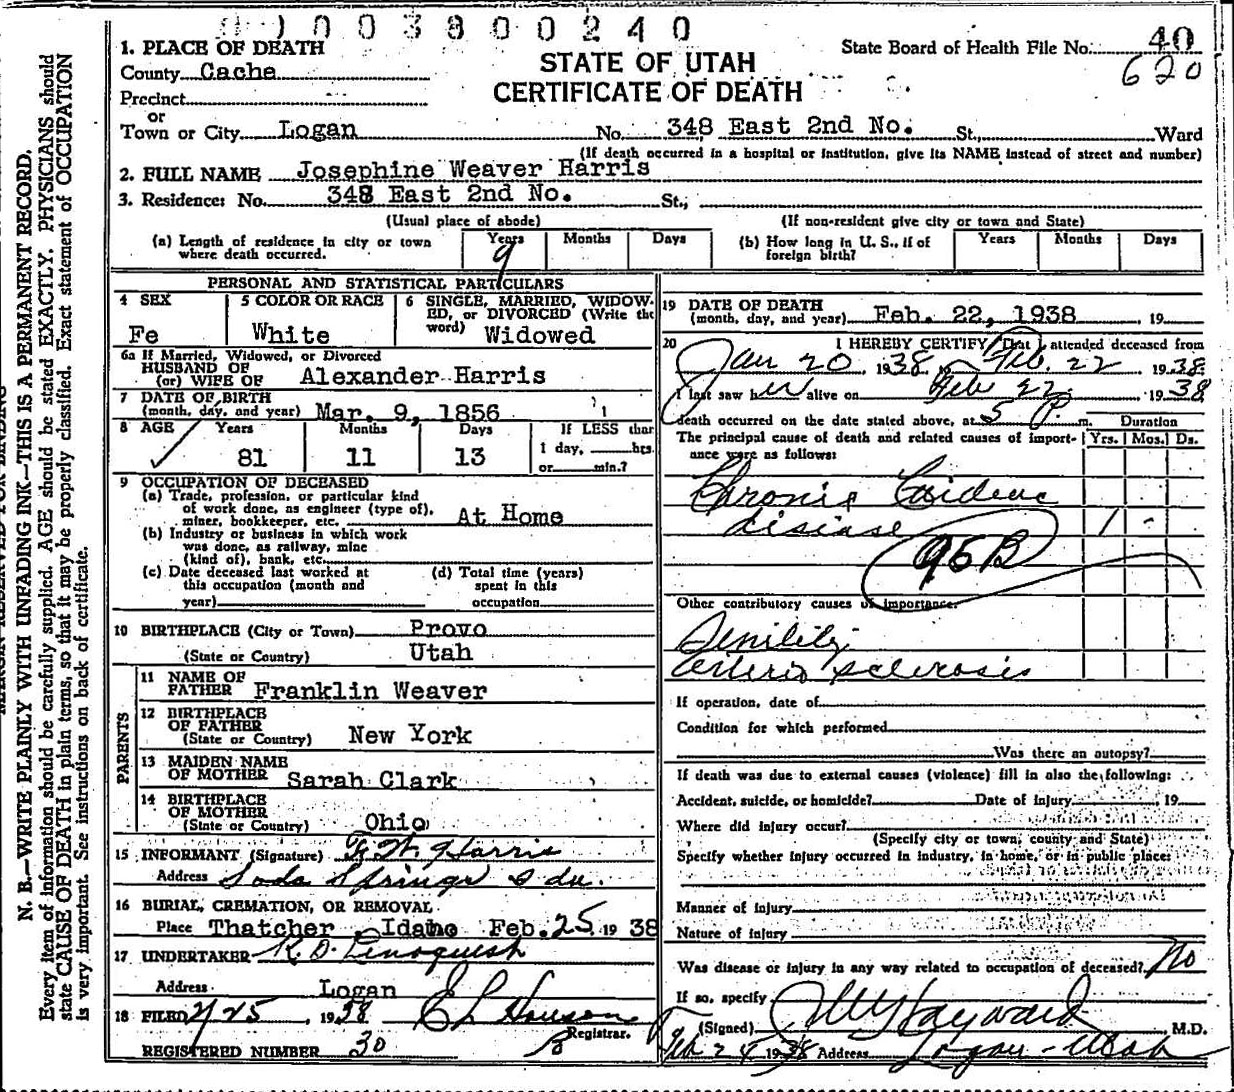 0 1 0 0 3 8 0 0 2 4 0
1. PLACE OF DEATH
County Cache
Precinct
or
Town or City Logan No. 348 East 2nd No. St., Ward
STATE OF UTAH
CERTIFICATE OF DEATH
State Board of Health File No. 40
620
(If death occurred in a hospital or institution, give its NAME instead of street and number)
2. FULL NAME Josephine Weaver Harris
3. Residence: No. 348 East 2nd No. St.,
(Usual place of abode) (If non-resident give city or town and State)
(a) Length of residence in city or town where death occurred. Years 9 Months Days
(b) How long in U. S., if of foreign birth? Years Months Days
PERSONAL AND STATISTICAL PARTICULARS
4 SEX
Fe
5 COLOR OR RACE
White
6 SINGLE, MARRIED, WIDOW-
ED, or DIVORCED (Write the
word) Widowed
6a If Married, Widowed, or Divorced
HUSBAND OF
(or) WIFE OF Alexander Harris
7 DATE OF BIRTH
(month, day, and year) Mar. 9, 1856
8 AGE Years Months Days If LESS than
81 11 13 1 day, hrs.
or min.?
9 OCCUPATION OF DECEASED
(a) Trade, profession, or particular kind
of work done, as engineer (type of),
miner, bookkeeper, etc. At Home
(b) Industry or business in which work
was done, as railway, mine
(kind of), bank, etc.
(c) Date deceased last worked at
this occupation (month and
year)
(d) Total time (years)
spent in this
occupation
10 BIRTHPLACE (City or Town) Provo
(State or Country) Utah
PARENTS
11 NAME OF
FATHER Franklin Weaver
12 BIRTHPLACE
OF FATHER
(State or Country) New York
13 MAIDEN NAME
OF MOTHER Sarah Clark
14 BIRTHPLACE
OF MOTHER
(State or Country) Ohio
15 INFORMANT (Signature) Harris
Address Soda Springs Ida.
16 BURIAL, CREMATION, OR REMOVAL
Place Thatcher, Idaho Feb. 25 19 38
17 UNDERTAKER
Address Logan
18 FILED 2/25, 1938
Registrar.
REGISTERED NUMBER 30
19 DATE OF DEATH
(month, day, and year) Feb. 22, 1938, 19
20 I HEREBY CERTIFY, That I attended deceased from
Jan 20 1938 to Feb. 22 1938
I last saw her alive on Feb 22 1938
death occurred on the date stated above, at 5 P. m.
Duration
The principal cause of death and related causes of import-
ance were as follows:
Yrs. Mos. Ds.
Chronic Cardiac
disease 1 -
95B
Other contributory causes of importance.
Senility
arterio sclerosis
If operation, date of
Condition for which performed
Was there an autopsy?
If death was due to external causes (violence) fill in also the following:
Accident, suicide, or homicide? Date of injury , 19
Where did injury occur?
(Specify city or town, county and State)
Specify whether injury occurred in industry, in home, or in public place:
Manner of injury
Nature of injury
Was disease or injury in any way related to occupation of deceased? No
If so, specify
(Signed) Hayward, M.D.
Feb 24 1938 Address Logan - Utah
N. B.—WRITE PLAINLY WITH UNFADING INK—THIS IS A PERMANENT RECORD.
Every item of information should be carefully supplied. AGE should be stated EXACTLY. PHYSICIANS should
state CAUSE OF DEATH in plain terms, so that it may be properly classified. Exact statement of OCCUPATION
is very important. See instructions on back of certificate.